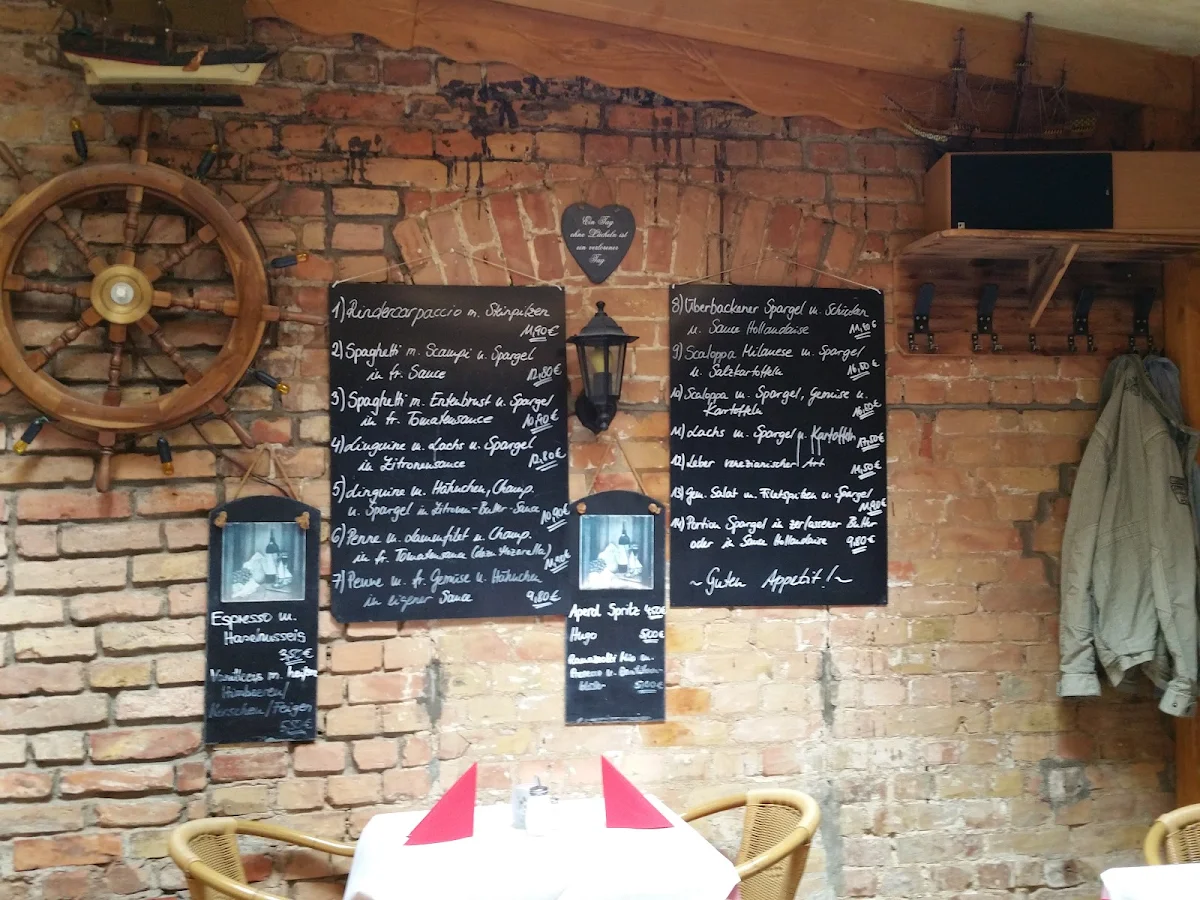 Ein Tag
ohne Lächeln ist
ein verlorener
Tag
1) Rindercarpaccio m. Steinpilzen
11,90 €
2) Spaghetti m. Scampi u. Spargel
in fr. Sauce
12,80 €
3) Spaghetti m. Entenbrust u. Spargel
in fr. Tomatensauce
10,90 €
4) Linguine m. Lachs u. Spargel
in Zitronensauce
12,80 €
5) Linguine m. Hähnchen, Champ.
u. Spargel in Zitronen-Butter-Sauce
10,90 €
6) Penne m. Lammfilet u. Champ.
in fr. Tomatensauce (dazu Mozarella)
7) Penne m. fr. Gemüse u. Hähnchen
in eigener Sauce
9,80 €
8) Überbackener Spargel m. Schinken
u. Sauce Hollandaise
11,80 €
9) Scaloppa Milanese m. Spargel
u. Salzkartoffeln
16,80 €
10) Scaloppa m. Spargel, Gemüse u.
Kartoffeln
11) Lachs m. Spargel u. Kartoffeln
17,50 €
12) Leber venezianischer Art
14,50 €
13) Gem. Salat m. Filetspitzen u. Spargel
11,90 €
14) Portion Spargel in zerlassener Butter
oder in Sauce Hollandaise
9,80 €
~ Guten Appetit! ~
Espresso m.
Haselnusseis
3,50 €
Vanilleeis m. heißen
Himbeeren/
Kirschen/Feigen
5,50 €
Aperol Spritz 4,50 €
Hugo 5,00 €
Ramazzotti
Prosecco u.
5,00 €